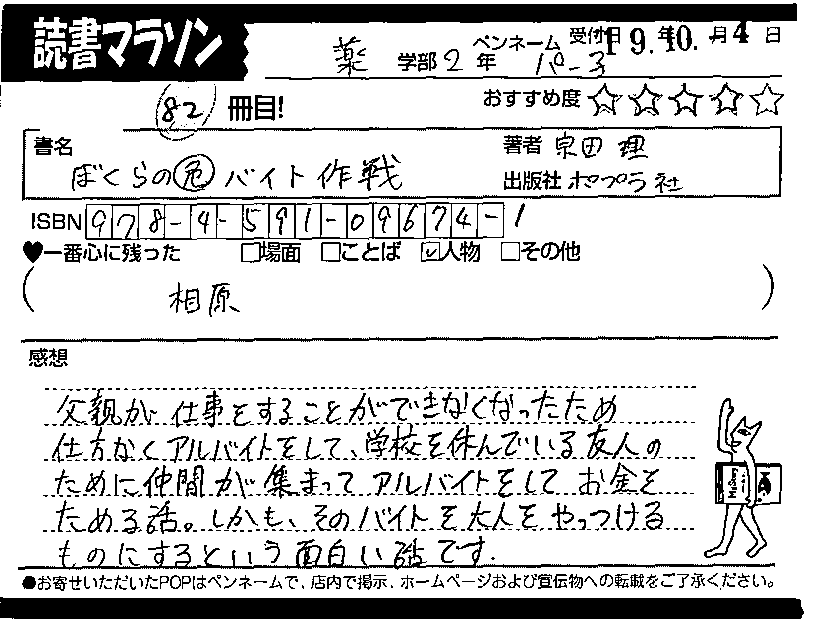 読書マラソン
薬 学部 2 年 ペンネーム パーコ 受付日 19.年10.月4日
82 冊目! おすすめ度 ☆☆☆☆☆
書名 ぼくらの㊋バイト作戦
著者 宗田 理
出版社 ポプラ社
ISBN 978-4-591-09674-1
♥一番心に残った □場面 □ことば ☑人物 □その他
( 相原 )
感想
父親が仕事をすることができなくなったため
仕方なくアルバイトをして、学校を休んでいる友人の
ために仲間が集まってアルバイトをしてお金を
ためる話。しかも、そのバイトを大人をやっつける
ものにするという面白い話です.
●お寄せいただいたPOPはペンネームで、店内で掲示、ホームページおよび宣伝物への転載をご了承ください。